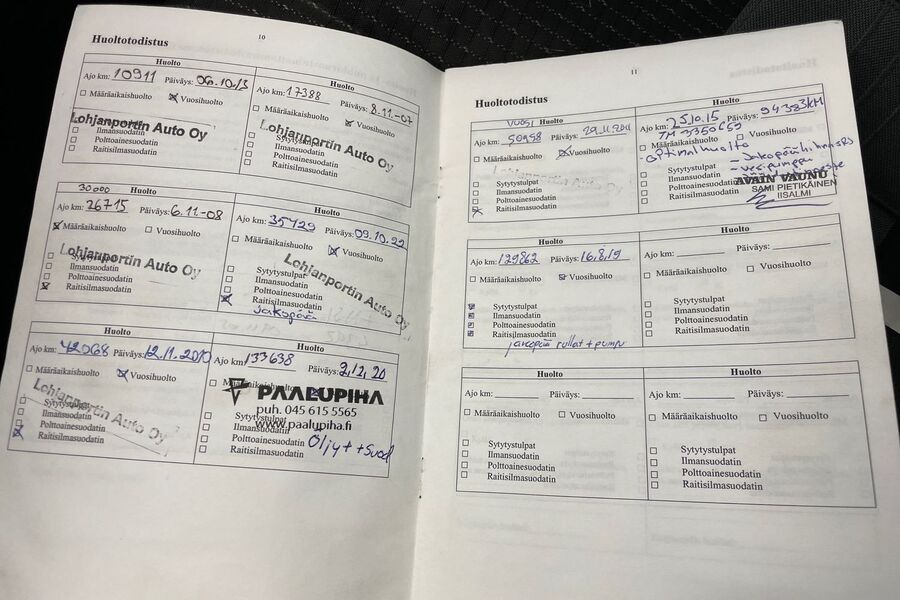 10
Huoltotodistus
Huolto
Ajo km: 10911 Päiväys: 06.10.13
Määräaikaishuolto Vuosihuolto
Lohjanportin Auto Oy
Ilmansuodatin
Polttoainesuodatin
Raitisilmasuodatin
Huolto
Ajo km: 17388 Päiväys: 8.11.-07
Määräaikaishuolto Vuosihuolto
Lohjanportin Auto Oy
Ilmansuodatin
Polttoainesuodatin
Raitisilmasuodatin
30000 Huolto
Ajo km: 26715 Päiväys: 6.11-08
Määräaikaishuolto Vuosihuolto
Lohjanportin Auto Oy
Ilmansuodatin
Polttoainesuodatin
Raitisilmasuodatin
Huolto
Ajo km: 35729 Päiväys: 09.10.22
Määräaikaishuolto Vuosihuolto
Lohjanportin Auto Oy
Sytytystulpat
Ilmansuodatin
Polttoainesuodatin
Raitisilmasuodatin
Jakopää
Huolto
Ajo km: 42068 Päiväys: 12.11.2010
Määräaikaishuolto Vuosihuolto
Lohjanportin Auto Oy
Sytytystulpat
Ilmansuodatin
Polttoainesuodatin
Raitisilmasuodatin
Huolto
Ajo km: 133638 Päiväys: 2.12.20
PAALUPIHA
puh. 045 615 5565
www.paalupiha.fi
Sytytystulpat
Ilmansuodatin
Polttoainesuodatin Öljyt + Suod
Raitisilmasuodatin
11
Huoltotodistus
VUOSI Huolto
Ajo km: 50958 Päiväys: 29.11.2011
Määräaikaishuolto Vuosihuolto
Lohjanportin Auto Oy
Sytytystulpat
Ilmansuodatin
Polttoainesuodatin
Raitisilmasuodatin
Huolto
Ajo km: 25.10.15 Päiväys: 94383KM
TM 3350669
Määräaikaishuolto Vuosihuolto
-optimal huolto
-Jakopäähihna
-vesipumppu
Sytytystulpat
Ilmansuodatin
Polttoainesuodatin
Raitisilmasuodatin
AVAIN VAUNU
SAMI PIETIKÄINEN
IISALMI
Huolto
Ajo km: 129862 Päiväys: 16.8.19
Määräaikaishuolto Vuosihuolto
Sytytystulpat
Ilmansuodatin
Polttoainesuodatin
Raitisilmasuodatin
jakopää rullat + pumpu
Huolto
Ajo km: Päiväys:
Määräaikaishuolto Vuosihuolto
Sytytystulpat
Ilmansuodatin
Polttoainesuodatin
Raitisilmasuodatin
Huolto
Ajo km: Päiväys:
Määräaikaishuolto Vuosihuolto
Sytytystulpat
Ilmansuodatin
Polttoainesuodatin
Raitisilmasuodatin
Huolto
Ajo km: Päiväys:
Määräaikaishuolto Vuosihuolto
Sytytystulpat
Ilmansuodatin
Polttoainesuodatin
Raitisilmasuodatin